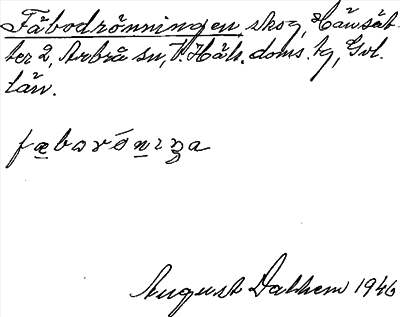 Fäbodrönningen, skog, Hänsät-
ter 2, Arbrå sn, V. Häls. doms. tg, Gvl.
län.
fæborôniŋa
August Dalhem 1946